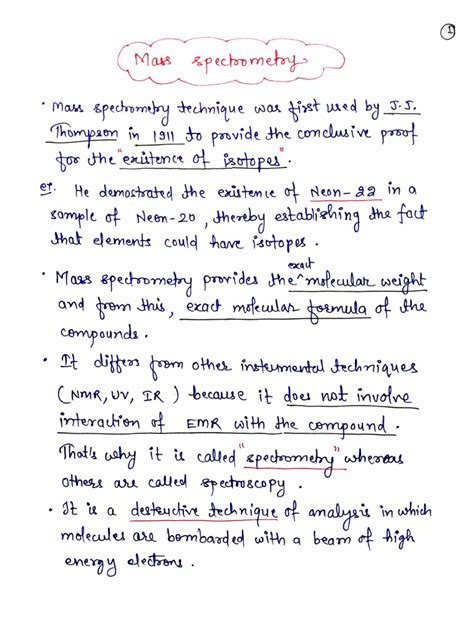 1
Mass spectrometry
• Mass spectrometry technique was first used by J.J.
Thompson in 1911 to provide the conclusive proof
for the "existence of isotopes".
eg. He demostrated the existence of Neon-22 in a
sample of Neon-20, thereby establishing the fact
that elements could have isotopes.
exact
• Mass spectrometry provides the ^ molecular weight
and from this, exact molecular formula of the
compounds.
• It differs from other instrumental techniques
(NMR, UV, IR) because it does not involve
interaction of EMR with the compound.
That's why it is called "spectrometry" whereas
others are called spectroscopy.
• It is a destructive technique of analysis in which
molecules are bombarded with a beam of high
energy electrons.